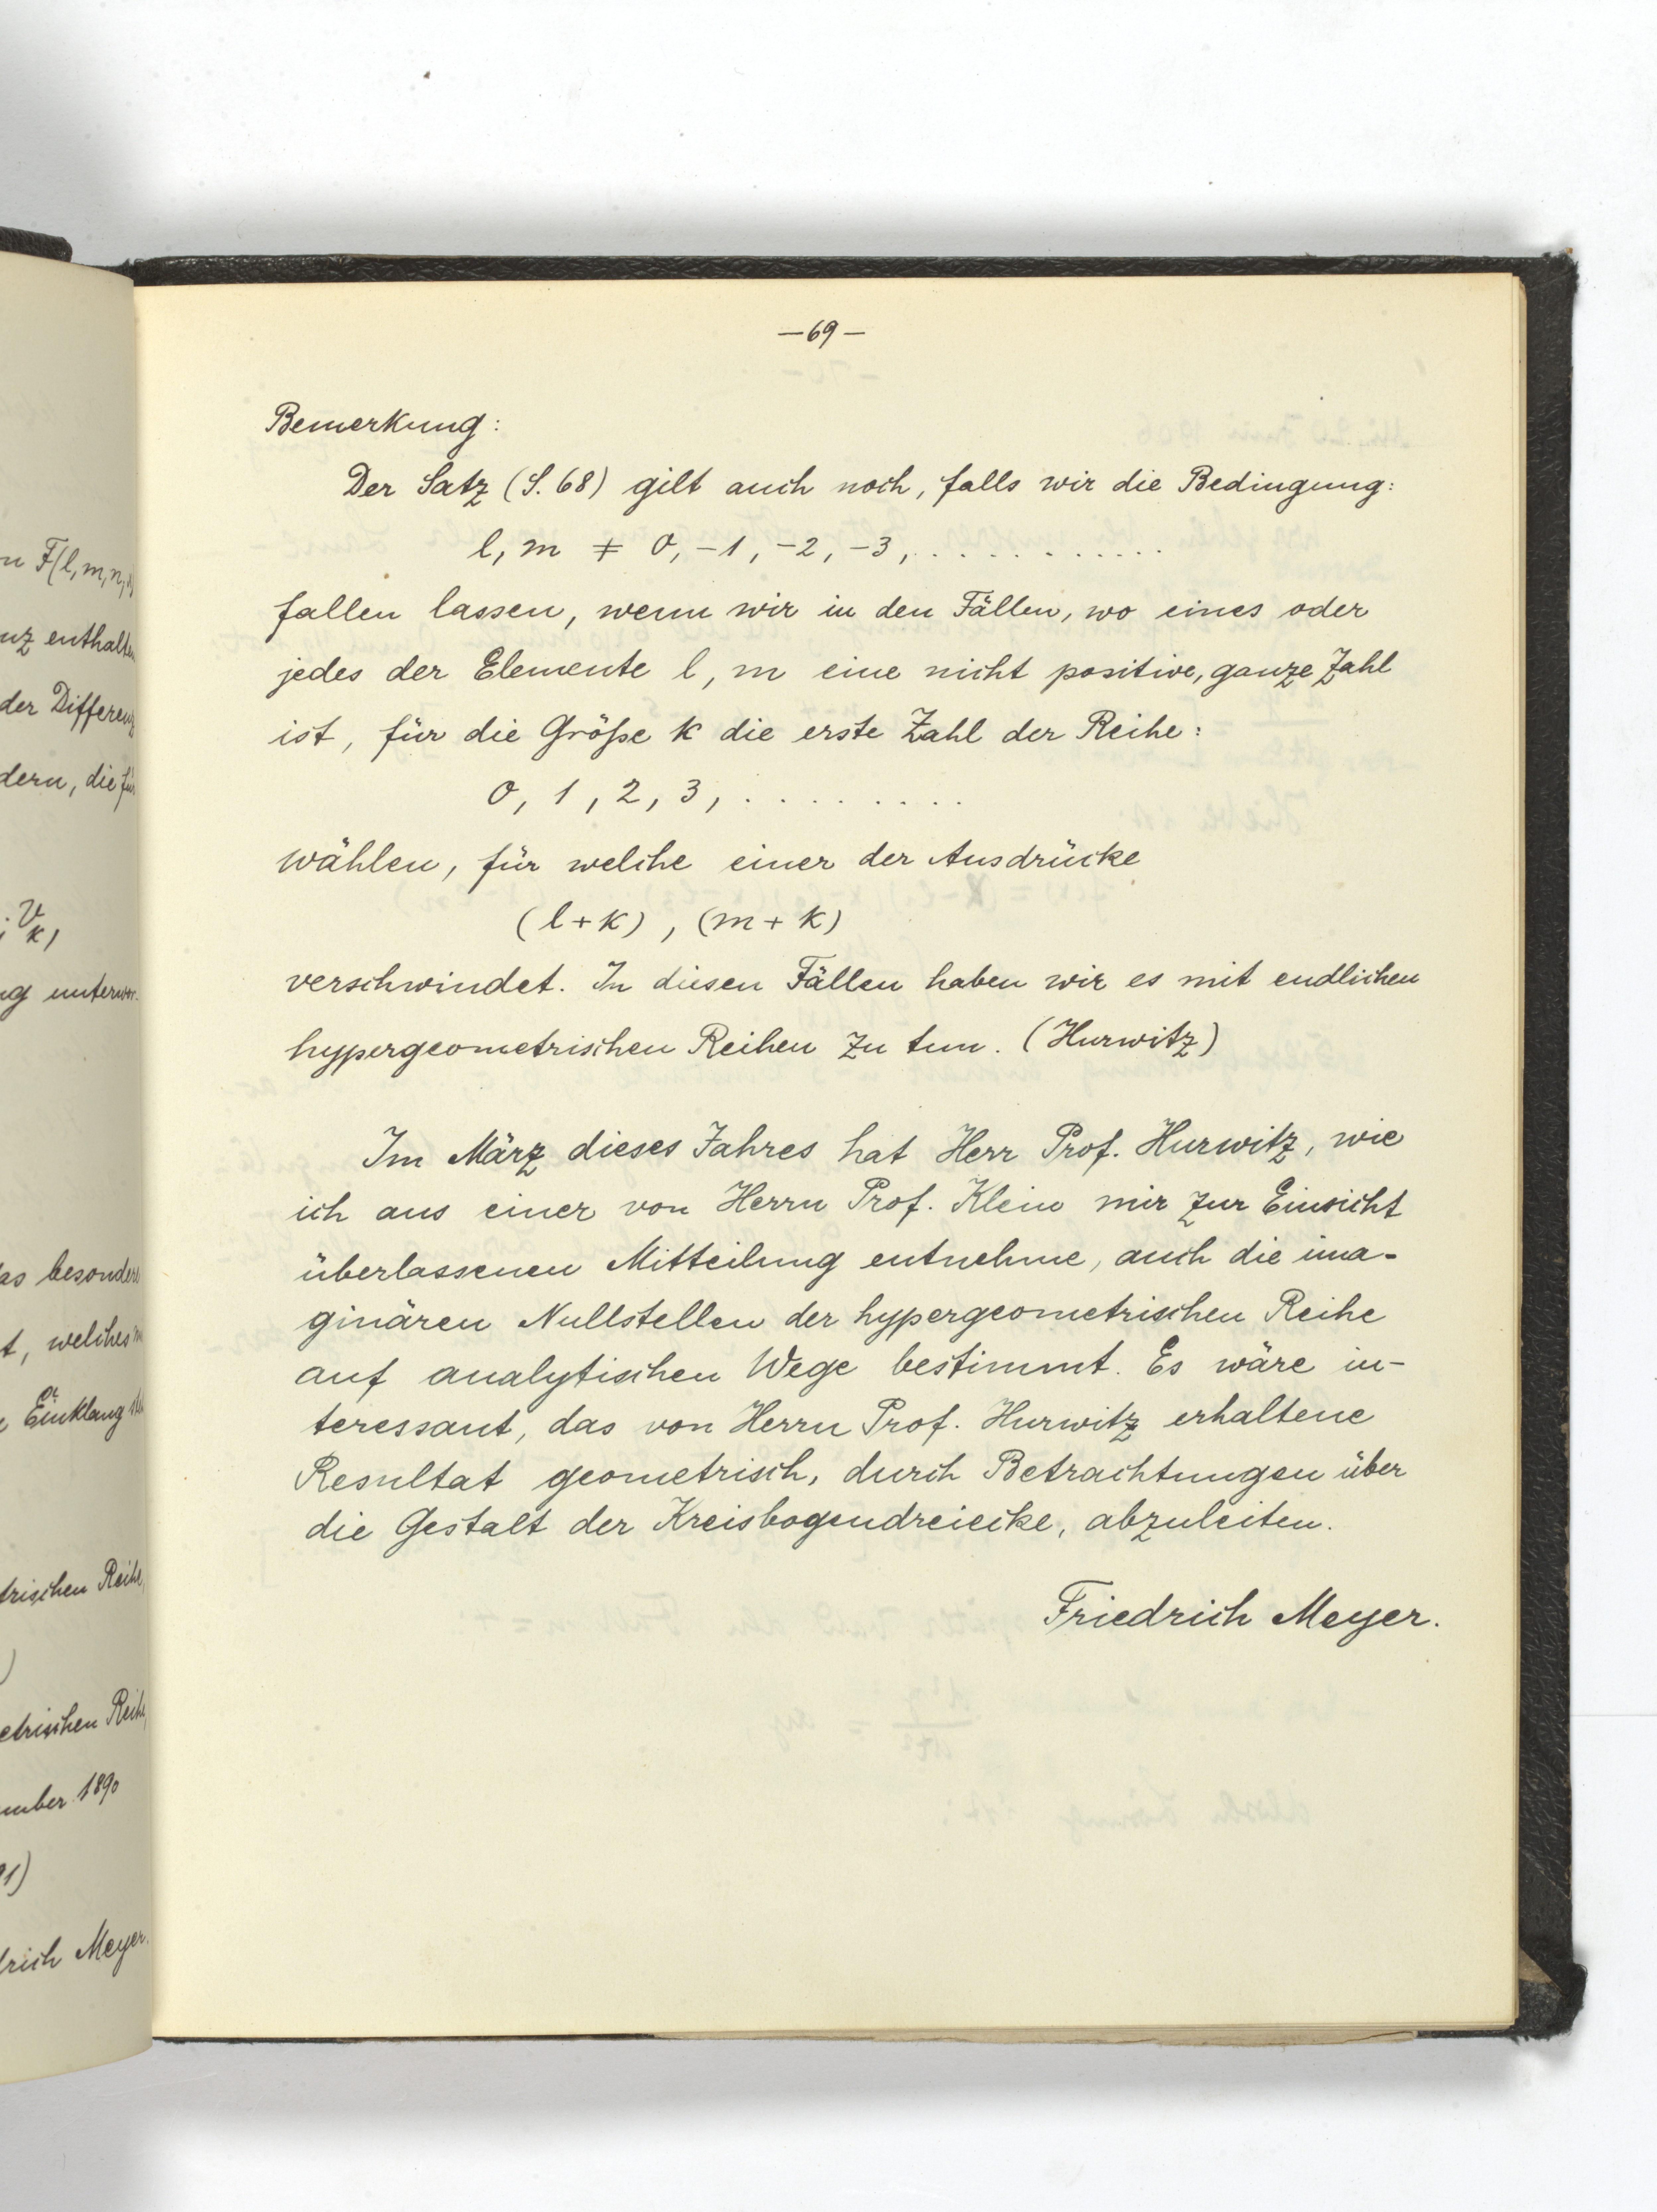 n F(l,m,n,
nz enthalten
der Differenz
dern, die für
V k,
ng unterwor-
as besondere
t, welches
Einklang
trischen Reihe,
etrischen Reihe,
ember 1890
91)
drich Meyer.
—69—
Bemerkung:
Der Satz (S. 68) gilt auch noch, falls wir die Bedingung:
l, m ≠ 0, -1, -2, -3, . . . . . . . . . . .
fallen lassen, wenn wir in den Fällen, wo eines oder
jedes der Elemente l, m eine nicht positive, ganze Zahl
ist, für die Größe k die erste Zahl der Reihe:
0, 1, 2, 3, . . . . . . . .
wählen, für welche einer der Ausdrücke
(l+k), (m+k)
verschwindet. In diesen Fällen haben wir es mit endlichen
hypergeometrischen Reihen zu tun. (Hurwitz)
Im März dieses Jahres hat Herr Prof. Hurwitz, wie
ich aus einer von Herrn Prof. Klein mir zur Einsicht
überlassenen Mitteilung entnehme, auch die ima-
ginären Nullstellen der hypergeometrischen Reihe
auf analytischen Wege bestimmt. Es wäre in-
teressant, das von Herrn Prof. Hurwitz erhaltene
Resultat geometrisch, durch Betrachtungen über
die Gestalt der Kreisbogendreiecke, abzuleiten.
Friedrich Meyer.